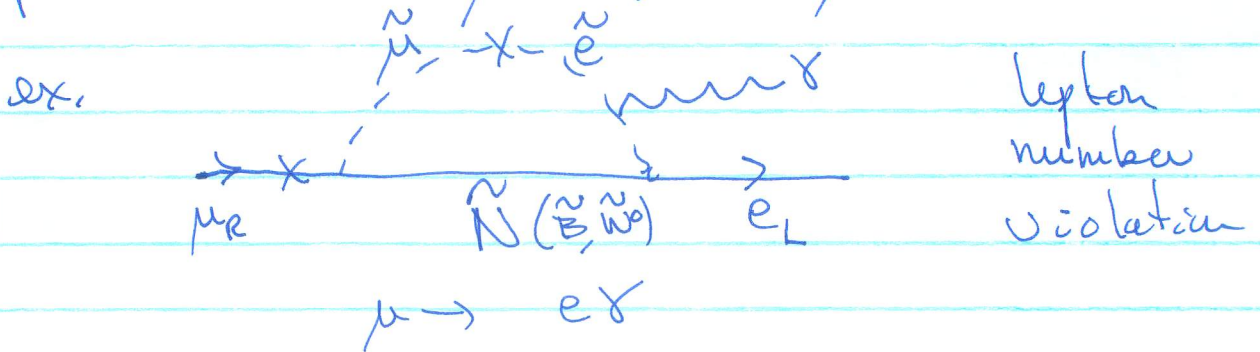 μ̃ -x- ẽ
γ
ex.
lepton
number
violation
x
μ_R
Ñ (B̃, W̃⁰)
e_L
μ → eγ